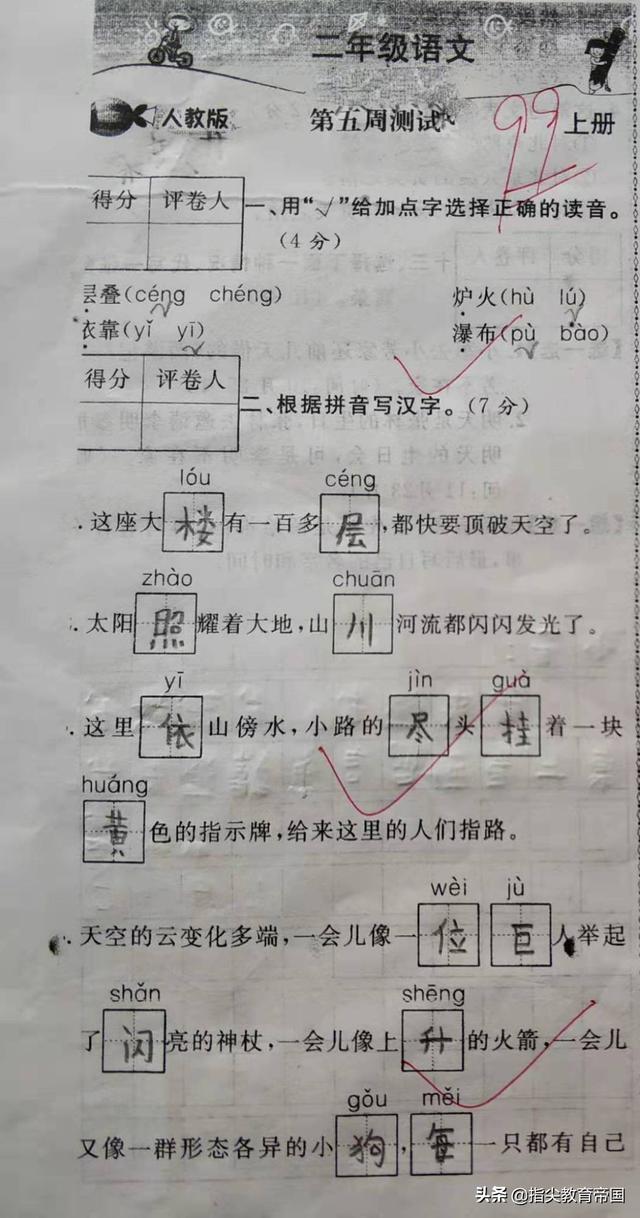 二年级语文
人教版 第五周测试 99 上册
得分 评卷人
一、用“√”给加点字选择正确的读音。
(4分)
层叠(céng chéng) 炉火(hù lú)
依靠(yǐ yī) 瀑布(pù bào)
得分 评卷人
二、根据拼音写汉字。(7分)
lóu céng
.这座大楼有一百多层,都快要顶破天空了。
zhào chuān
.太阳照耀着大地,山川河流都闪闪发光了。
yī jìn guà
.这里依山傍水,小路的尽头挂着一块
huáng
黄色的指示牌,给来这里的人们指路。
wèi jù
.天空的云变化多端,一会儿像一位巨人举起
shǎn shēng
了闪亮的神杖,一会儿像上升的火箭,一会儿
gǒu měi
又像一群形态各异的小狗,每一只都有自己
头条 @指尖教育帝国